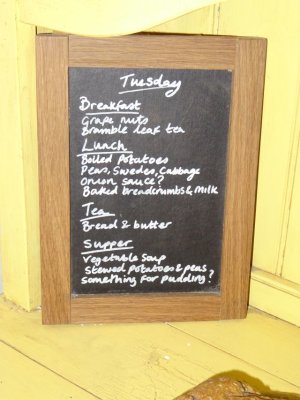 Tuesday
Breakfast
Grape nuts
Bramble leaf tea
Lunch
Boiled Potatoes
Peas, Swedes, Cabbage
Onion sauce?
Baked breadcrumbs & Milk
Tea
Bread & butter
Supper
Vegetable Soup
Stewed Potatoes & peas
something for pudding?